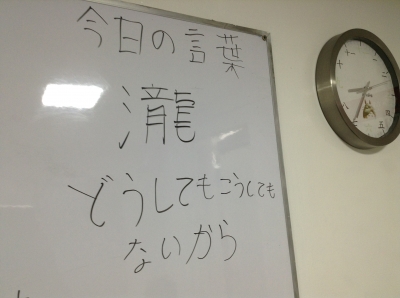 今日の言葉
瀧
どうしてもこうしても
ないから